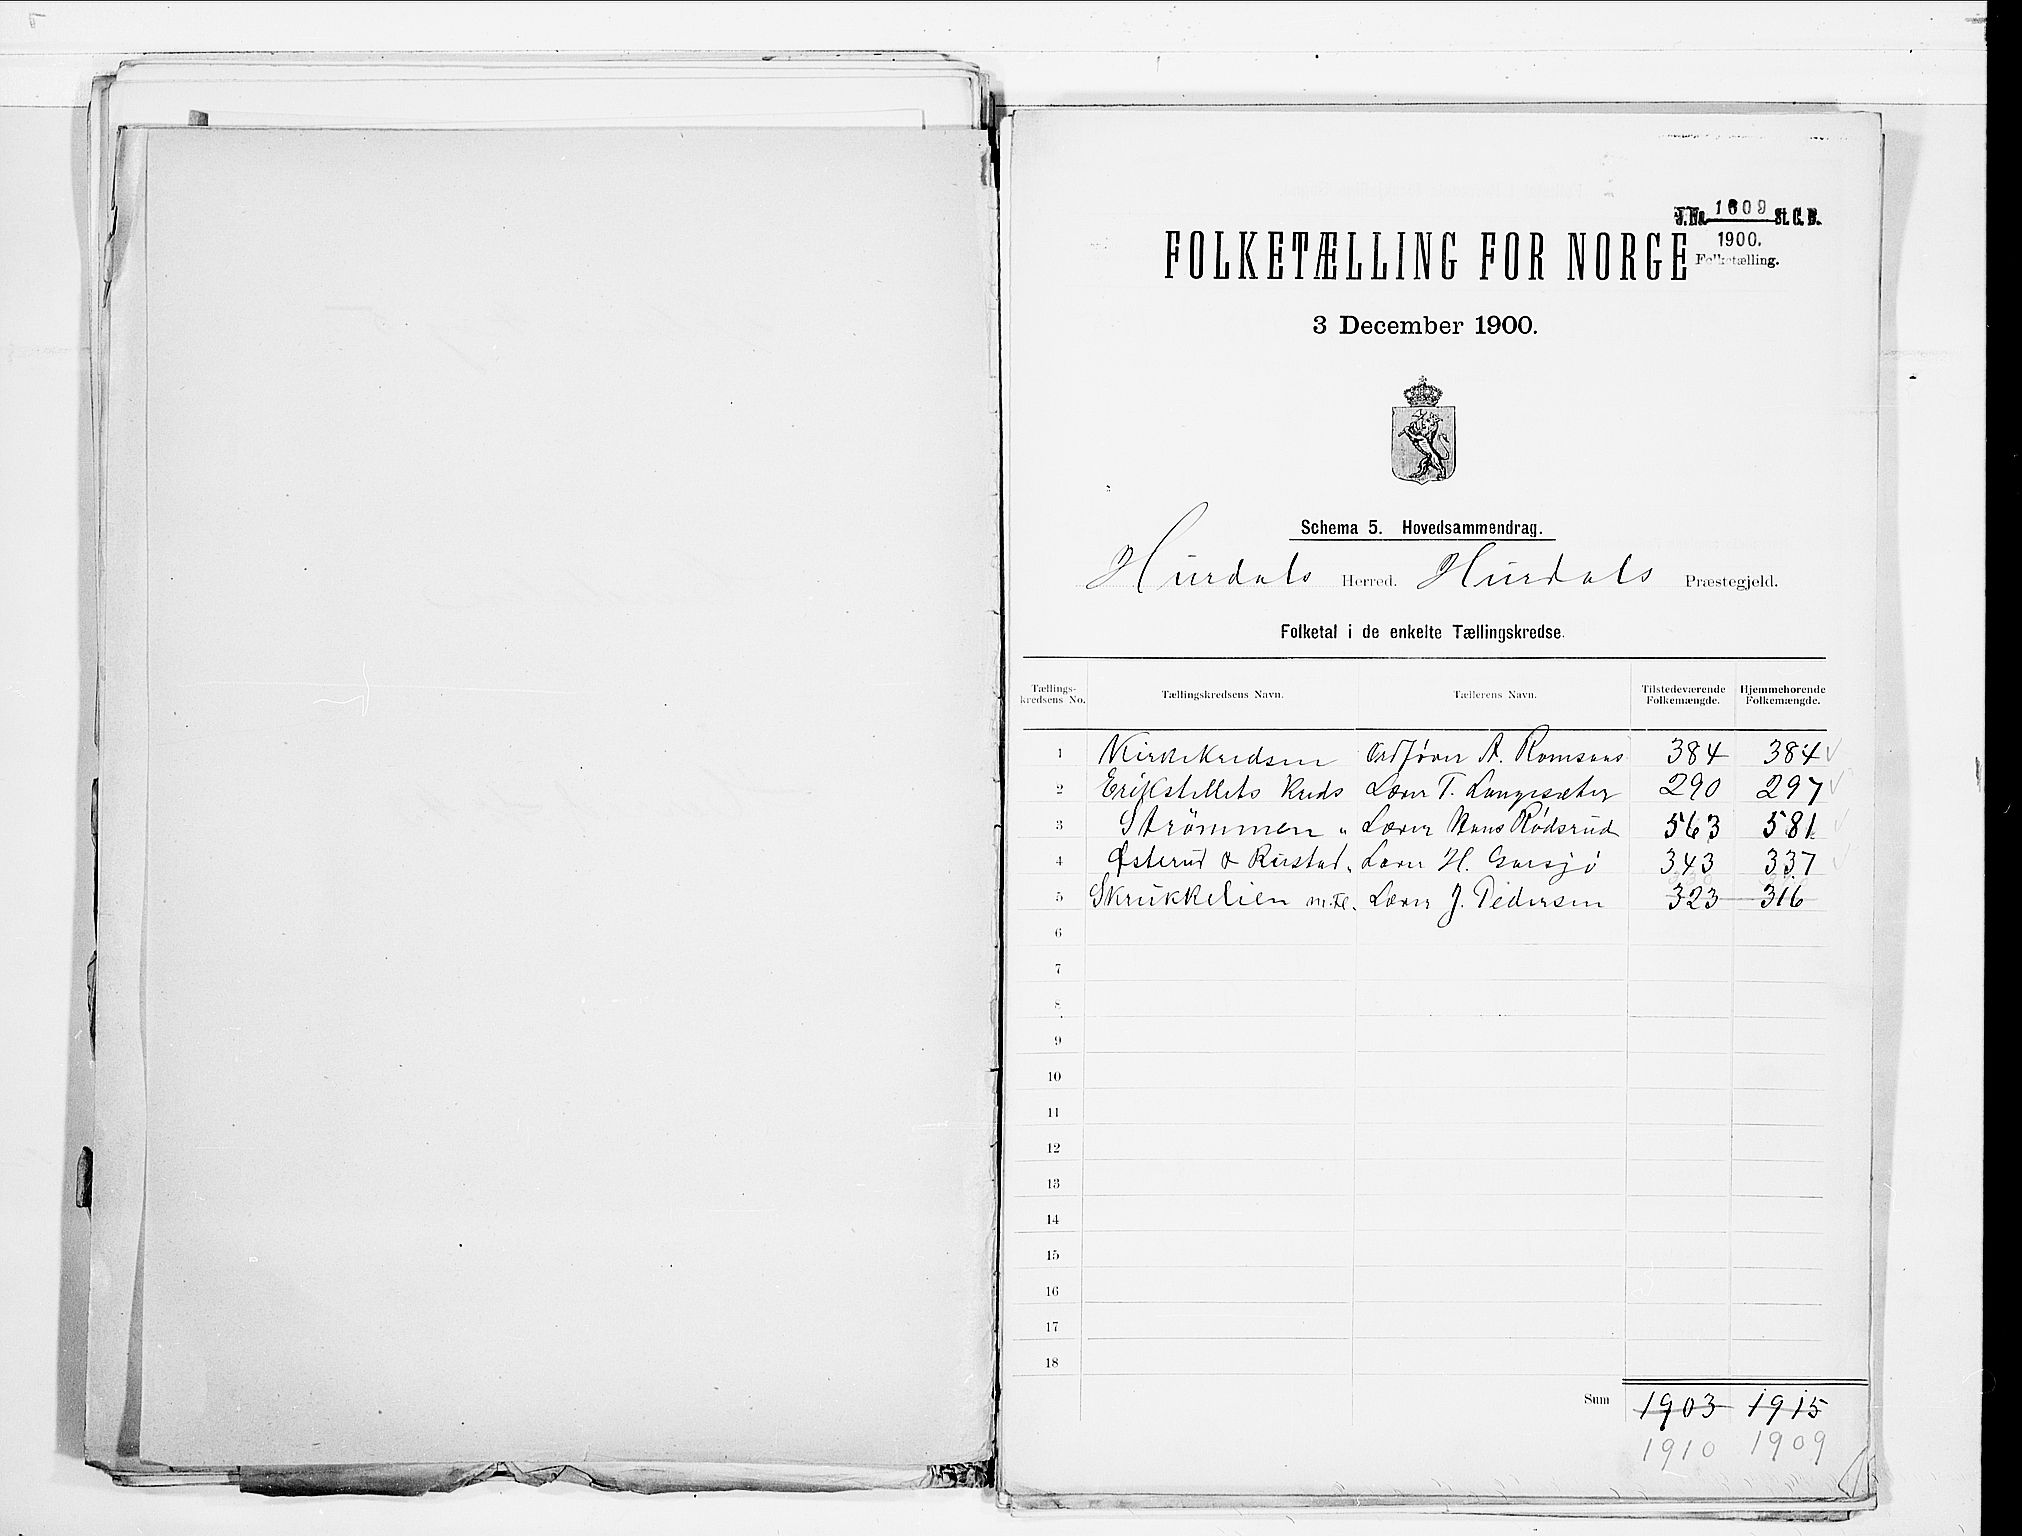 J.No. 1609 St. C. B.
1900.
Folketælling.
FOLKETÆLLING FOR NORGE
3 December 1900.
Schema 5. Hovedsammendrag.
Hurdals Herred. Hurdals Præstegjeld.
Folketal i de enkelte Tællingskredse.
Tællings-kredsens No. Tællingskredsens Navn. Tællerens Navn. Tilstedeværende Folkemængde. Hjemmehørende Folkemængde.
1 Kirkekredsen Ordfører A. Romsaas 384 384
2 Erikstellets Kreds Lærer T. Langesæter 290 297
3 Strömmen " Lærer Hans Rødsrud 563 581
4 Østerud & Rustad " Lærer H. Garsjø 343 337
5 Skrukkelien m. Fl. Lærer J. Pedersen 323 316
6
7
8
9
10
11
12
13
14
15
16
17
18
Sum 1903 1915
1910 1909